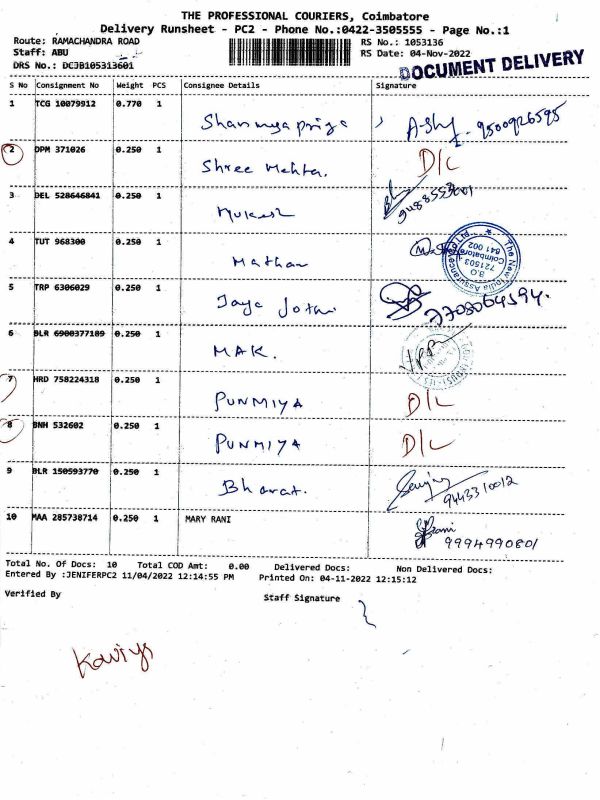 THE PROFESSIONAL COURIERS, Coimbatore
Delivery Runsheet - PC2 - Phone No.:0422-3505555 - Page No.:1
Route: RAMACHANDRA ROAD RS No.: 1053136
Staff: ABU RS Date: 04-Nov-2022
DRS No.: DCJB105313601 DOCUMENT DELIVERY
S No Consignment No Weight PCS Consignee Details Signature
1 TCG 10079912 0.770 1
Shanmugapriya 9500926595
2 DPM 371026 0.250 1 D/L
Shree Mehta.
3 DEL 528646841 0.250 1
Mukesh
4 TUT 968300 0.250 1
Mathan
The New India Assurance Co Ltd
B.O
721503
Coimbatore
641 002
5 TRP 6306029 0.250 1
Jaya Jothi
6 BLR 6900377189 0.250 1
MAK.
7 HRD 758224318 0.250 1
PUNMIYA D/L
8 BNH 532602 0.250 1
PUNMIYA D/L
9 BLR 150593770 0.250 1
Bharat. 9443310012
10 MAA 285738714 0.250 1 MARY RANI
Rani
9994990801
Total No. Of Docs: 10 Total COD Amt: 0.00 Delivered Docs: Non Delivered Docs:
Entered By :JENIFERPC2 11/04/2022 12:14:55 PM Printed On: 04-11-2022 12:15:12
Verified By Staff Signature